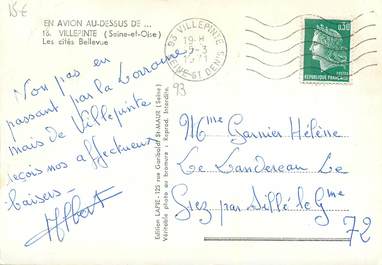 15€
EN AVION AU-DESSUS DE ...
16. VILLEPINTE (Seine-et-Oise)
Les cités Bellevue
93 VILLEPINTE
19-H
1971
SEINE-ST DENIS
0,30
REPUBLIQUE FRANÇAISE
POSTES
93
Non pas en
passant par la Lorraine
mais de Villepinte
reçois nos affectueux
baisers.
Albert
Edition LAPIE - 125 rue Garibaldi St-MAUR (Seine)
Véritable photo au bromure - Reprod. Interdite.
Mme Garnier Hélène
Le Landereau Le
Grez par Sillé le Gme
72